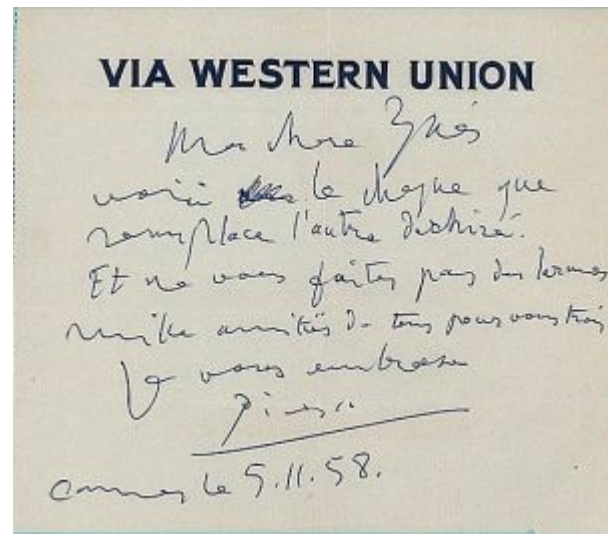 VIA WESTERN UNION
Ma chere Inès
voici le cheque que
remplace l'autre dechiré.
Et ne vous faites pas des
mille amitiés de tous pour vous trois
Je vous embrasse
Picasso
Cannes le 5.11.58.